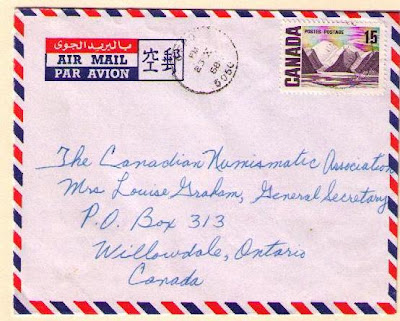 بالبريد الجوى
AIR MAIL
PAR AVION
空郵
PM
68
5050
CANADA
POSTES POSTAGE
15
The Canadian Numismatic Association
Mrs Louise Graham, General Secretary
P.O. Box 313
Willowdale, Ontario
Canada